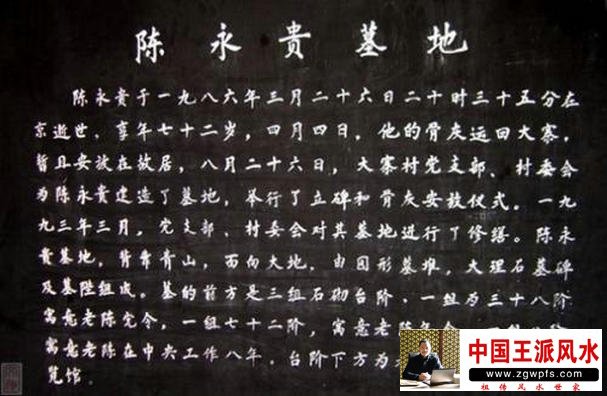 陈永贵墓地
陈永贵于一九八六年三月二十六日二十时三十五分在
京逝世，享年七十二岁，四月四日，他的骨灰运回大寨，
暂且安放在故居，八月二十六日，大寨村党支部、村委会
为陈永贵建造了墓地，举行了立碑和骨灰安放仪式。一九
九三年三月，党支部、村委会对其墓地进行了修缮。陈永
贵墓地，背靠青山，面向大地，由圆形墓堆，大理石墓碑
及墓陛组成。墓的前方是三组石砌台阶，一组为三十八阶
寓意老陈党令，一组七十二阶，寓意老
寓意老陈在中央工作八年，台阶下方为
览馆。
中国王派风水
www.zgwpfs.com
祖传风水世家